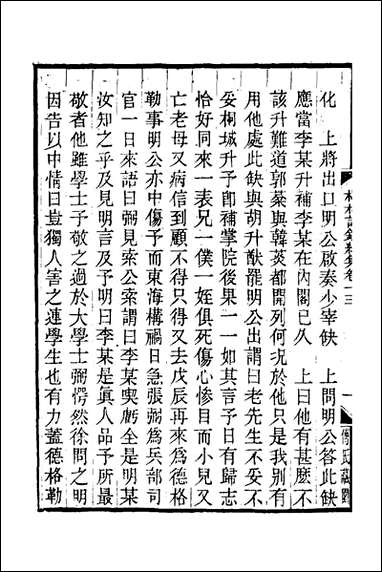 榕村語錄續集卷十三　一　傅氏藏園
化　上將出口明公啟奏少宰缺　上問明公答此缺
應當李某升補李某在內閣已久　上曰他有甚麽不
該升難道郭棻與韓菼都開列何況於他只是我別有
用他處此缺與胡升猷罷明公出謂曰老先生不妥不
妥桐城升予卽補掌院後果一一如其言予日有歸志
恰好同來一表兄一僕一姪俱死傷心慘目而小兒又
亡老母又病信到顧不得只得又去戊辰再來爲德格
勒事明公亦中傷予而東海構禍日急張弼爲兵部司
官一日來語曰弼見索公索謂曰李某喫虧全是明某
汝知之乎及見明言及予明曰李某是眞人品予所最
敬者他雖學士予敬之過於大學士弼愕然徐問之明
因告以中情曰豈獨人害之連學生也有力蓋德格勒